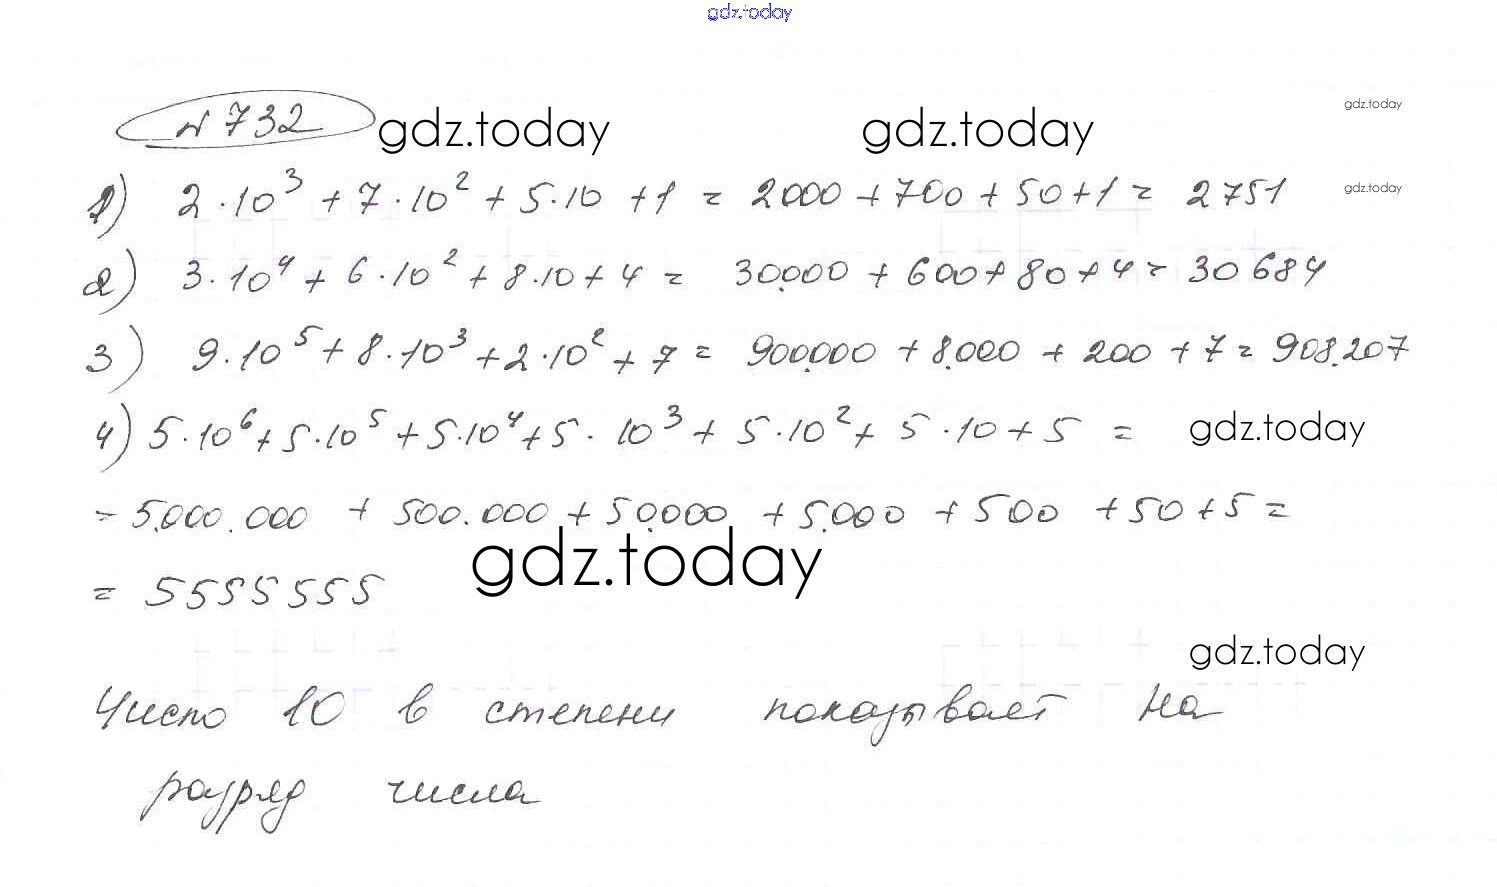 gdz.today
№ 732 gdz.today gdz.today gdz.today
1) 2·10³ + 7·10² + 5·10 + 1 = 2000 + 700 + 50 + 1 = 2751 gdz.today
2) 3·10⁴ + 6·10² + 8·10 + 4 = 30.000 + 600 + 80 + 4 = 30684
3) 9·10⁵ + 8·10³ + 2·10² + 7 = 900.000 + 8.000 + 200 + 7 = 908.207
4) 5·10⁶ + 5·10⁵ + 5·10⁴ + 5·10³ + 5·10² + 5·10 + 5 = gdz.today
= 5.000.000 + 500.000 + 50.000 + 5.000 + 500 + 50 + 5 =
gdz.today
= 5555555
gdz.today
Число 10 в степени показывает на
разряд числа